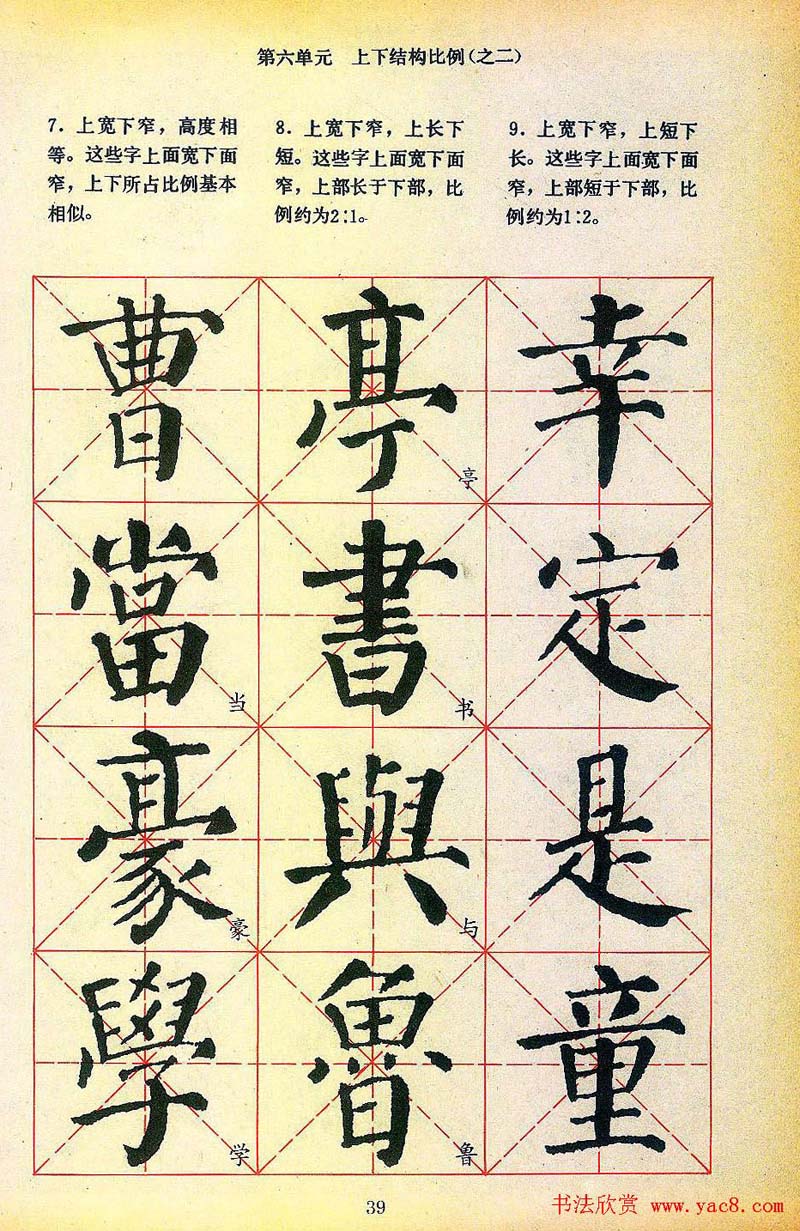 第六单元 上下结构比例(之二)
7. 上宽下窄,高度相
等。这些字上面宽下面
窄,上下所占比例基本
相似。
8. 上宽下窄,上长下
短。这些字上面宽下面
窄,上部长于下部,比
例约为2∶1。
9. 上宽下窄,上短下
长。这些字上面宽下面
窄,上部短于下部,比
例约为1∶2。
曹 亭 幸
亭
當 書 定
当 书
豪 與 是
豪 与
學 魯 童
学 鲁
39
书法欣赏 www.yac8.com